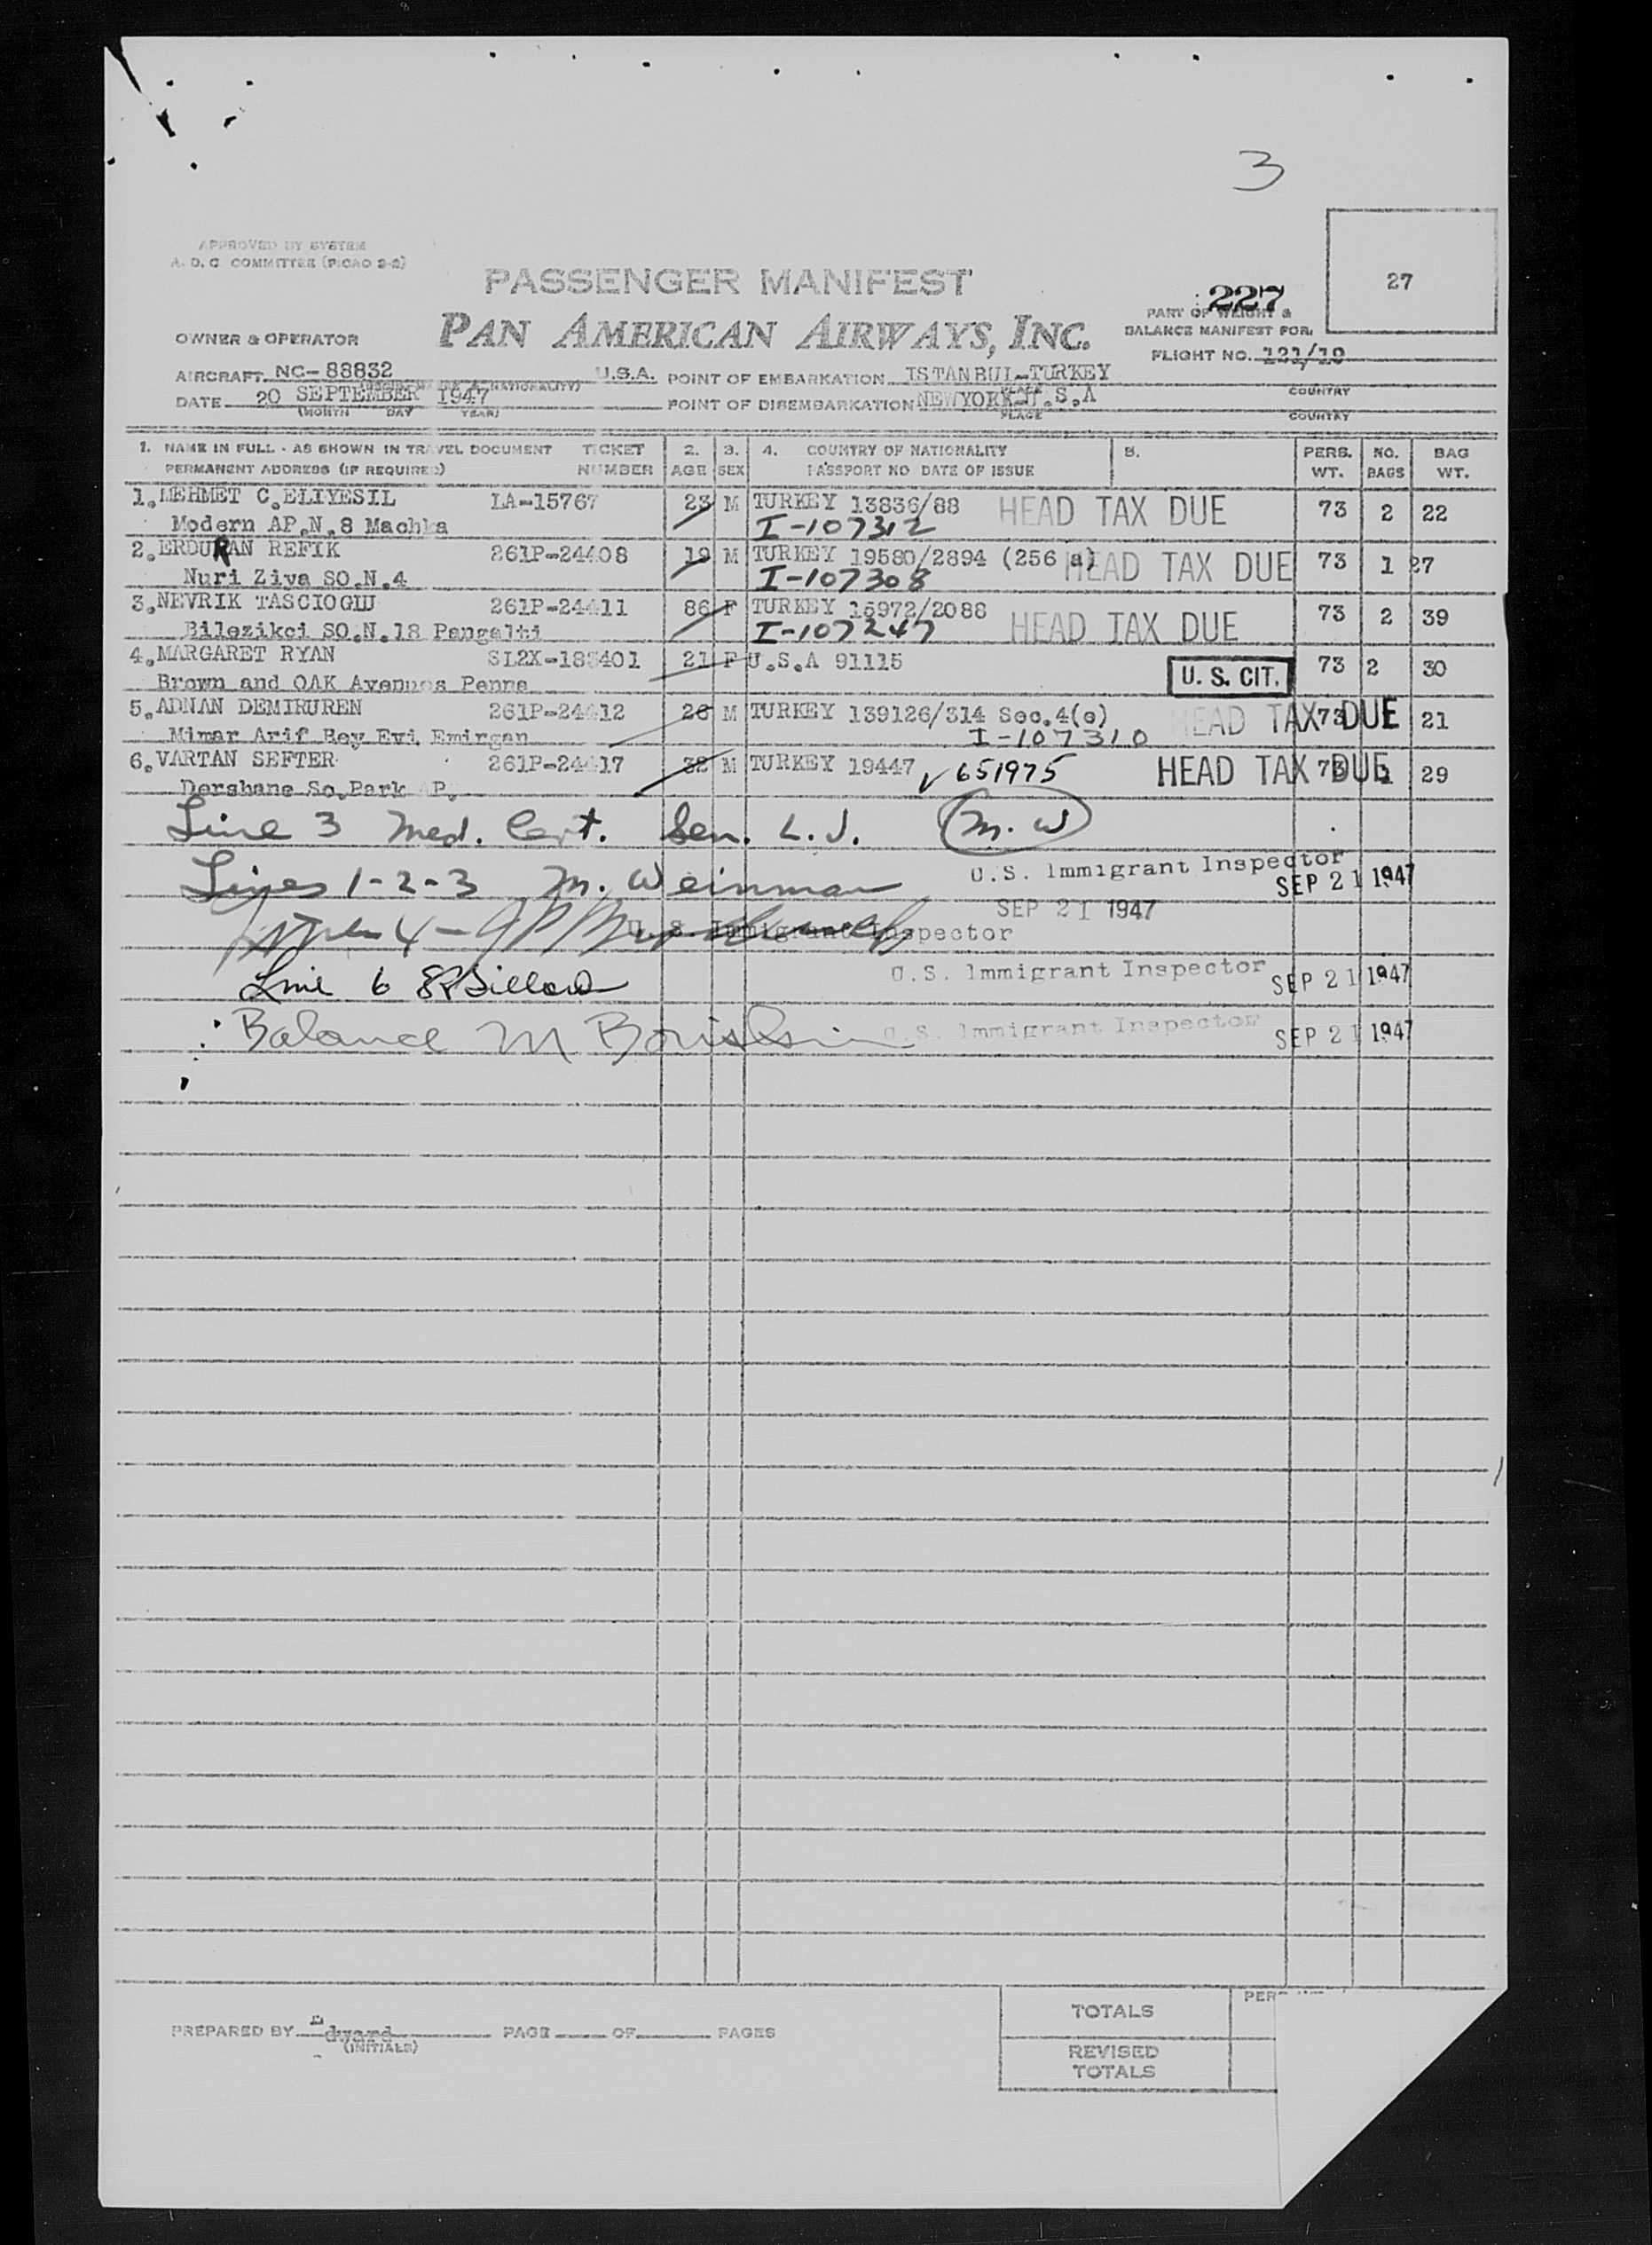 3
APPROVED BY SYSTEM
A. D. C. COMMITTEE (PICAO 2-2)
27
PASSENGER MANIFEST
227
PART OF WEIGHT &
BALANCE MANIFEST FOR
OWNER & OPERATOR PAN AMERICAN AIRWAYS, INC.
FLIGHT NO. 121/19
AIRCRAFT NC-88832 U.S.A. POINT OF EMBARKATION ISTANBUL-TURKEY
PLACE COUNTRY
DATE 20 SEPTEMBER 1947 POINT OF DISEMBARKATION NEWYORK-U.S.A
(MONTH DAY YEAR) PLACE COUNTRY
1. NAME IN FULL - AS SHOWN IN TRAVEL DOCUMENT TICKET 2. 3. 4. COUNTRY OF NATIONALITY 5. PERS. NO. BAG
PERMANENT ADDRESS (IF REQUIRED) NUMBER AGE SEX PASSPORT NO DATE OF ISSUE WT. BAGS WT.
1.MEHMET C.ELIYESIL LA-15767 23 M TURKEY 13836/88 HEAD TAX DUE 73 2 22
Modern AP.N.8 Machka I-107312
2.ERDURAN REFIK 261P-24408 19 M TURKEY 19580/2894 (256 a) HEAD TAX DUE 73 1 27
Nuri Ziya SO.N.4 I-107308
3.NEVRIK TASCIOGLU 261P-24411 86 F TURKEY 15972/2088 HEAD TAX DUE 73 2 39
Bilezikci SO.N.18 Pangalti I-107247
4.MARGARET RYAN SL2X-183401 21 F U.S.A 91115 U. S. CIT. 73 2 30
Brown and OAK Avenues Penna
5.ADNAN DEMIRUREN 261P-24412 26 M TURKEY 139126/314 Sec.4(e) HEAD TAX DUE 73 21
Mimar Arif Bey Evi Emirgan I-107310
6.VARTAN SEFTER 261P-24417 32 M TURKEY 19447 ✓651975 HEAD TAX DUE 73 29
Dershane So.Park AP.
Line 3 Med. Cert. Sen. L.J. M. W
Lines 1-2-3 M. Weinman U.S. Immigrant Inspector SEP 21 1947
4 - U.S. Immigrant Inspector SEP 21 1947
Line 6 U.S. Immigrant Inspector SEP 21 1947
Balance M U.S. Immigrant Inspector SEP 21 1947
PREPARED BY Edward PAGE OF PAGES
(INITIALS)
TOTALS PER
REVISED
TOTALS